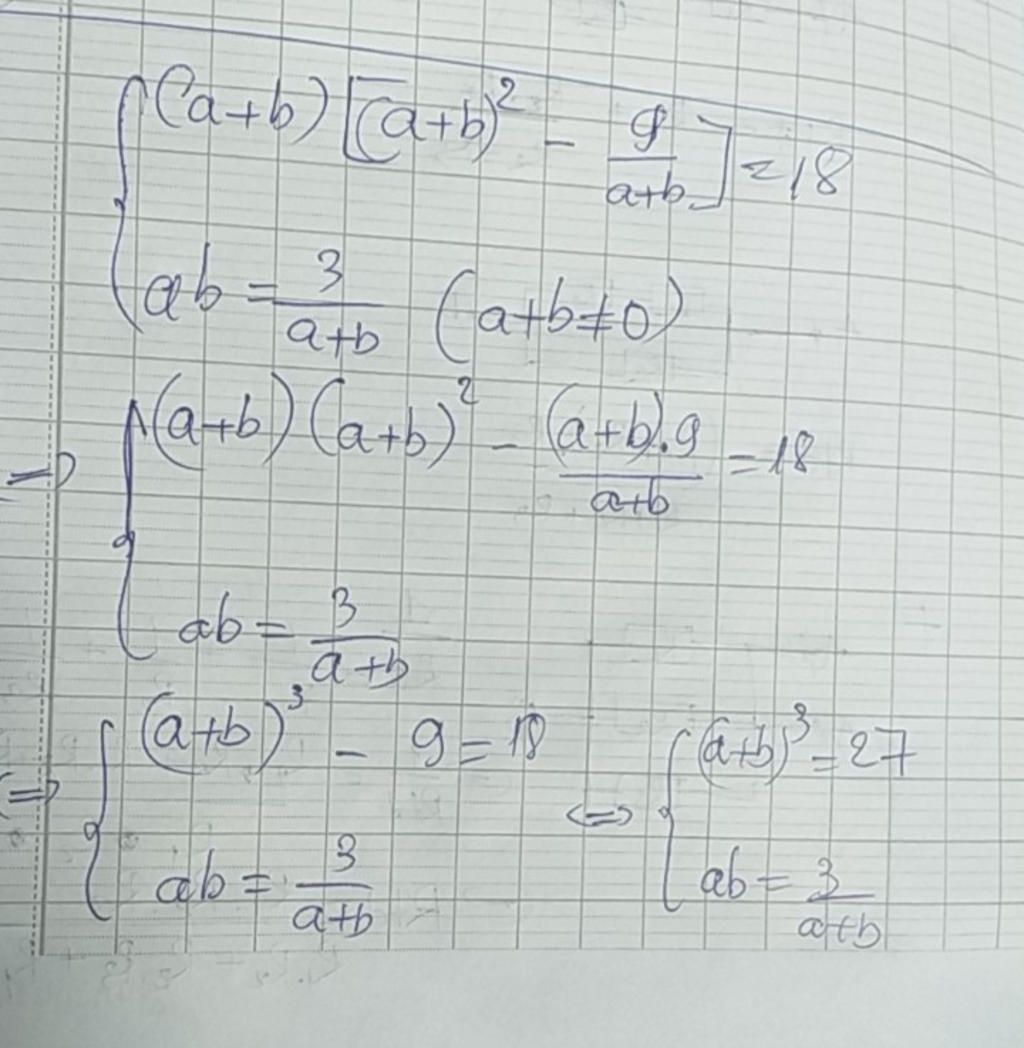 { (a+b) [(a+b)² - 9/(a+b)] = 18
ab = 3/(a+b) (a+b≠0)
⇒ { (a+b) (a+b)² - (a+b).9/(a+b) = 18
ab = 3/(a+b)
⇔ { (a+b)³ - 9 = 18 ⇔ { (a+b)³ = 27
ab = 3/(a+b) ab = 3/(a+b)